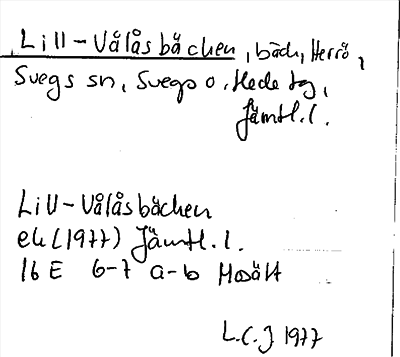 Lill-Vålåsbäcken, bäck, Herrö,
Svegs sn, Svegs o. Hede tg,
Jämtl. l.
Lill-Vålåsbäcken
ek (1977) Jämtl. l.
16 E 6-7 a-b
L.C.J 1977